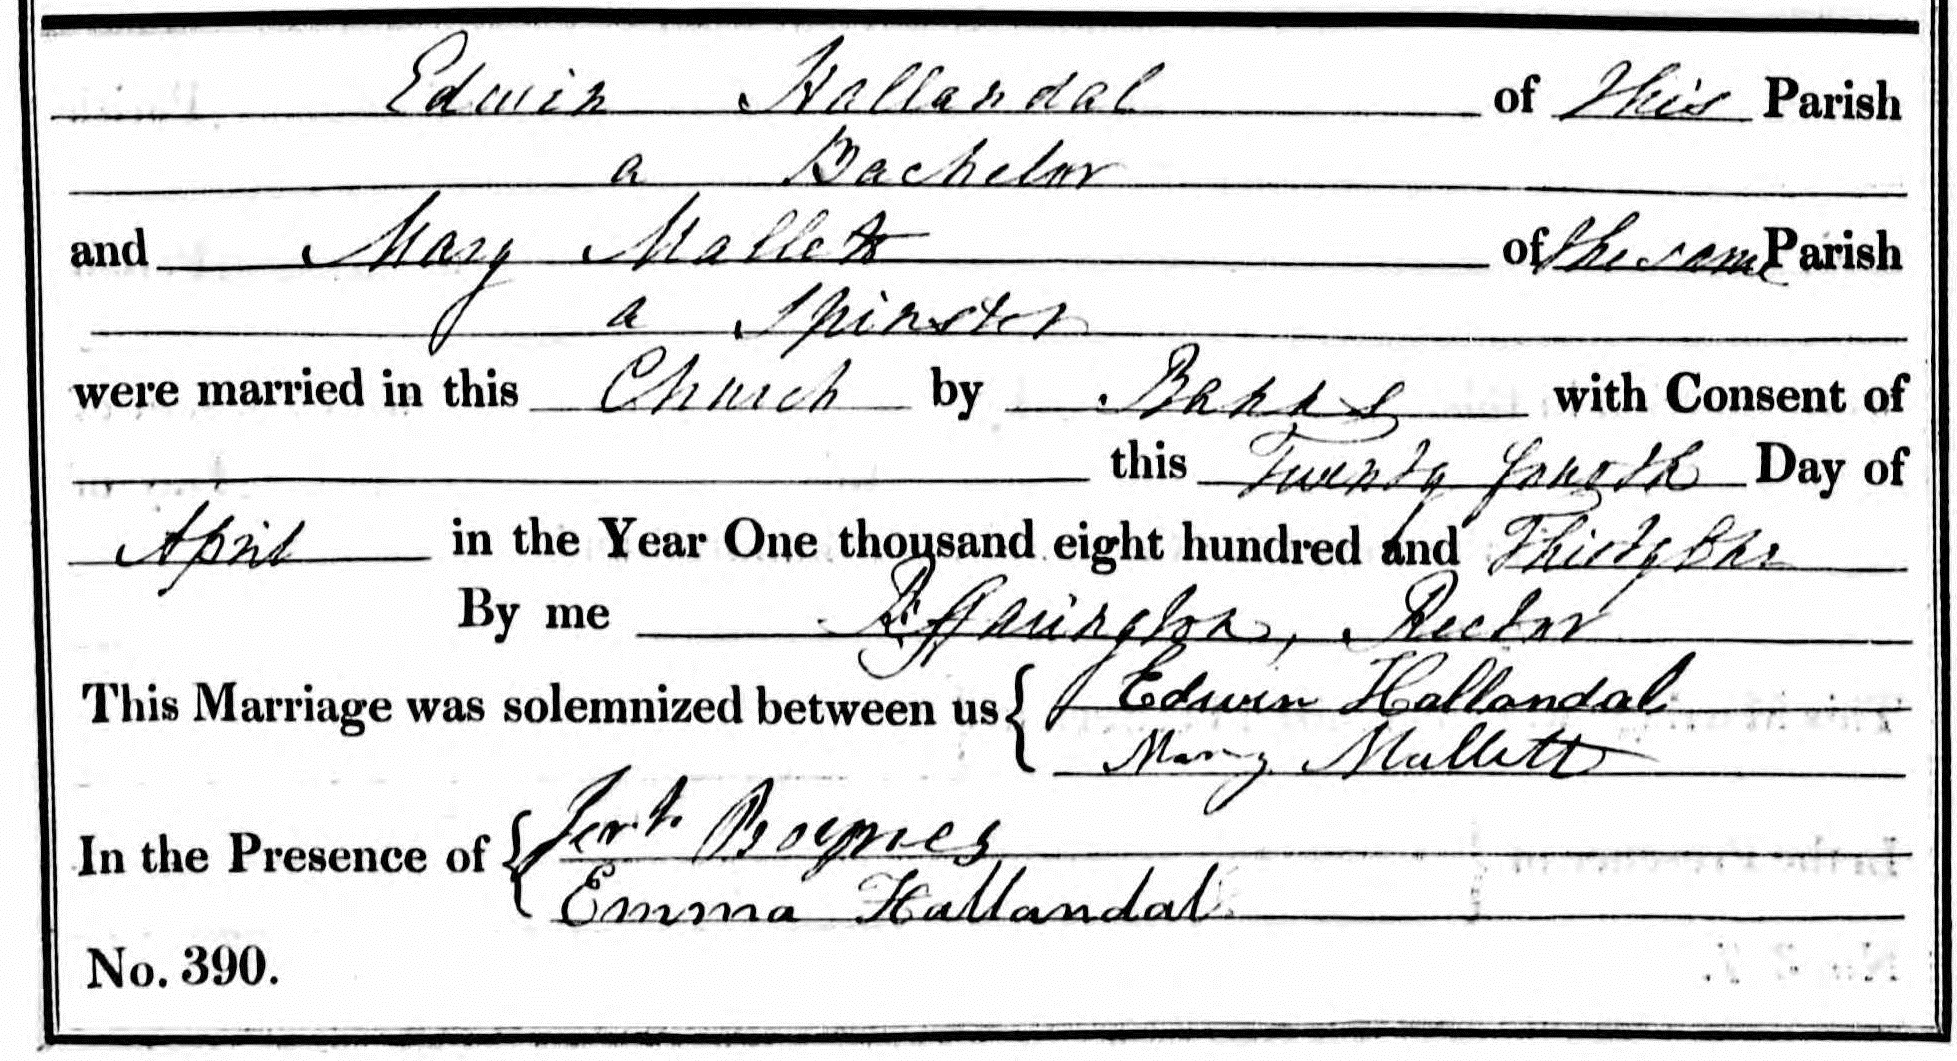 Edwin Hallandal of this Parish
a Bachelor
and Mary Mallett of the same Parish
a Spinster
were married in this Church by Banns with Consent of
this Twenty fourth Day of
April in the Year One thousand eight hundred and Thirty One
By me Rector
This Marriage was solemnized between us { Edwin Hallandal
Mary Mullett
In the Presence of { Boymes
Emma Hallandal
No. 390.